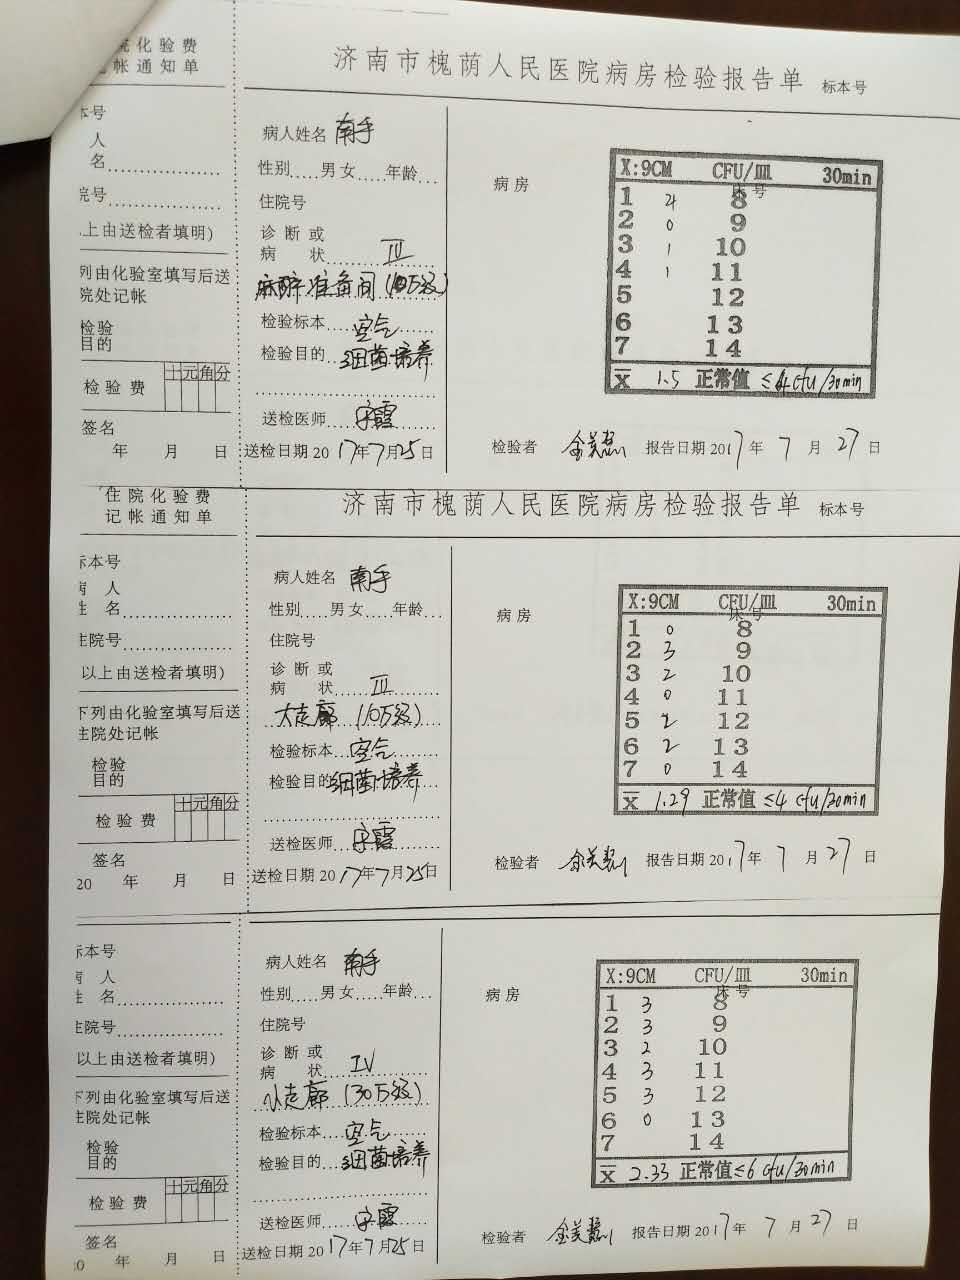 院化验费
帐通知单
本号
人
名
院号
以上由送检者填明)
列由化验室填写后送
院处记帐
检验
目的
检验费 十元角分
签名
年 月 日
济南市槐荫人民医院病房检验报告单 标本号
病人姓名 南手
性别 男女 年龄
住院号
诊断或
病状 III
麻醉准备间(10万级)
检验标本 空气
检验目的 细菌培养
送检医师 宋霞
送检日期 2017年7月25日
病房
床号
X:9CM CFU/皿 30min
1 4 8
2 0 9
3 1 10
4 1 11
5 12
6 13
7 14
x̄ 1.5 正常值 ≤4 cfu/30min
检验者 报告日期 2017年7月27日
住院化验费
记帐通知单
标本号
病人
姓名
住院号
以上由送检者填明)
下列由化验室填写后送
住院处记帐
检验
目的
检验费 十元角分
签名
20 年 月 日
济南市槐荫人民医院病房检验报告单 标本号
病人姓名 南手
性别 男女 年龄
住院号
诊断或
病状 III
大走廊(10万级)
检验标本 空气
检验目的 细菌培养
送检医师 宋霞
送检日期 2017年7月25日
病房
床号
X:9CM CFU/皿 30min
1 0 8
2 3 9
3 2 10
4 0 11
5 2 12
6 2 13
7 0 14
x̄ 1.29 正常值 ≤4 cfu/30min
检验者 报告日期 2017年7月27日
标本号
病人
姓名
住院号
以上由送检者填明)
下列由化验室填写后送
住院处记帐
检验
目的
检验费 十元角分
签名
20 年 月 日
病人姓名 南手
性别 男女 年龄
住院号
诊断或
病状 IV
小走廊(30万级)
检验标本 空气
检验目的 细菌培养
送检医师 宋霞
送检日期 2017年7月25日
病房
床号
X:9CM CFU/皿 30min
1 3 8
2 3 9
3 2 10
4 3 11
5 3 12
6 0 13
7 14
x̄ 2.33 正常值 ≤6 cfu/30min
检验者 报告日期 2017年7月27日